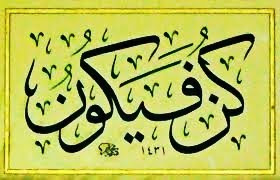 كُنْ فَيَكُونُ
١٤٣١